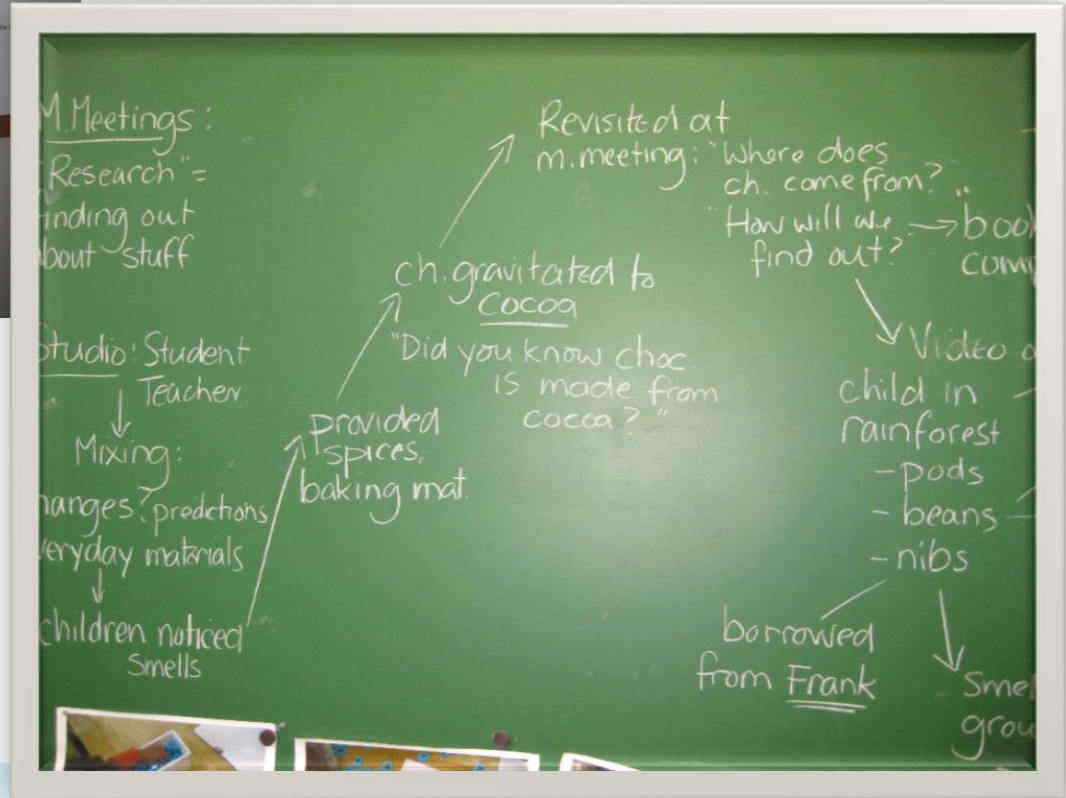 M.Meetings:
Research" =
finding out
about stuff
Studio: Student
Teacher
Mixing:
changes? predictions
everyday materials
children noticed
smells
provided
spices,
baking mat.
ch. gravitated to
cocoa
"Did you know choc
is made from
cocoa?"
Revisited at
m.meeting: "Where does
ch. come from?"
"How will we
find out?"
Video
child in
rainforest
- pods
- beans
- nibs
borrowed
from Frank